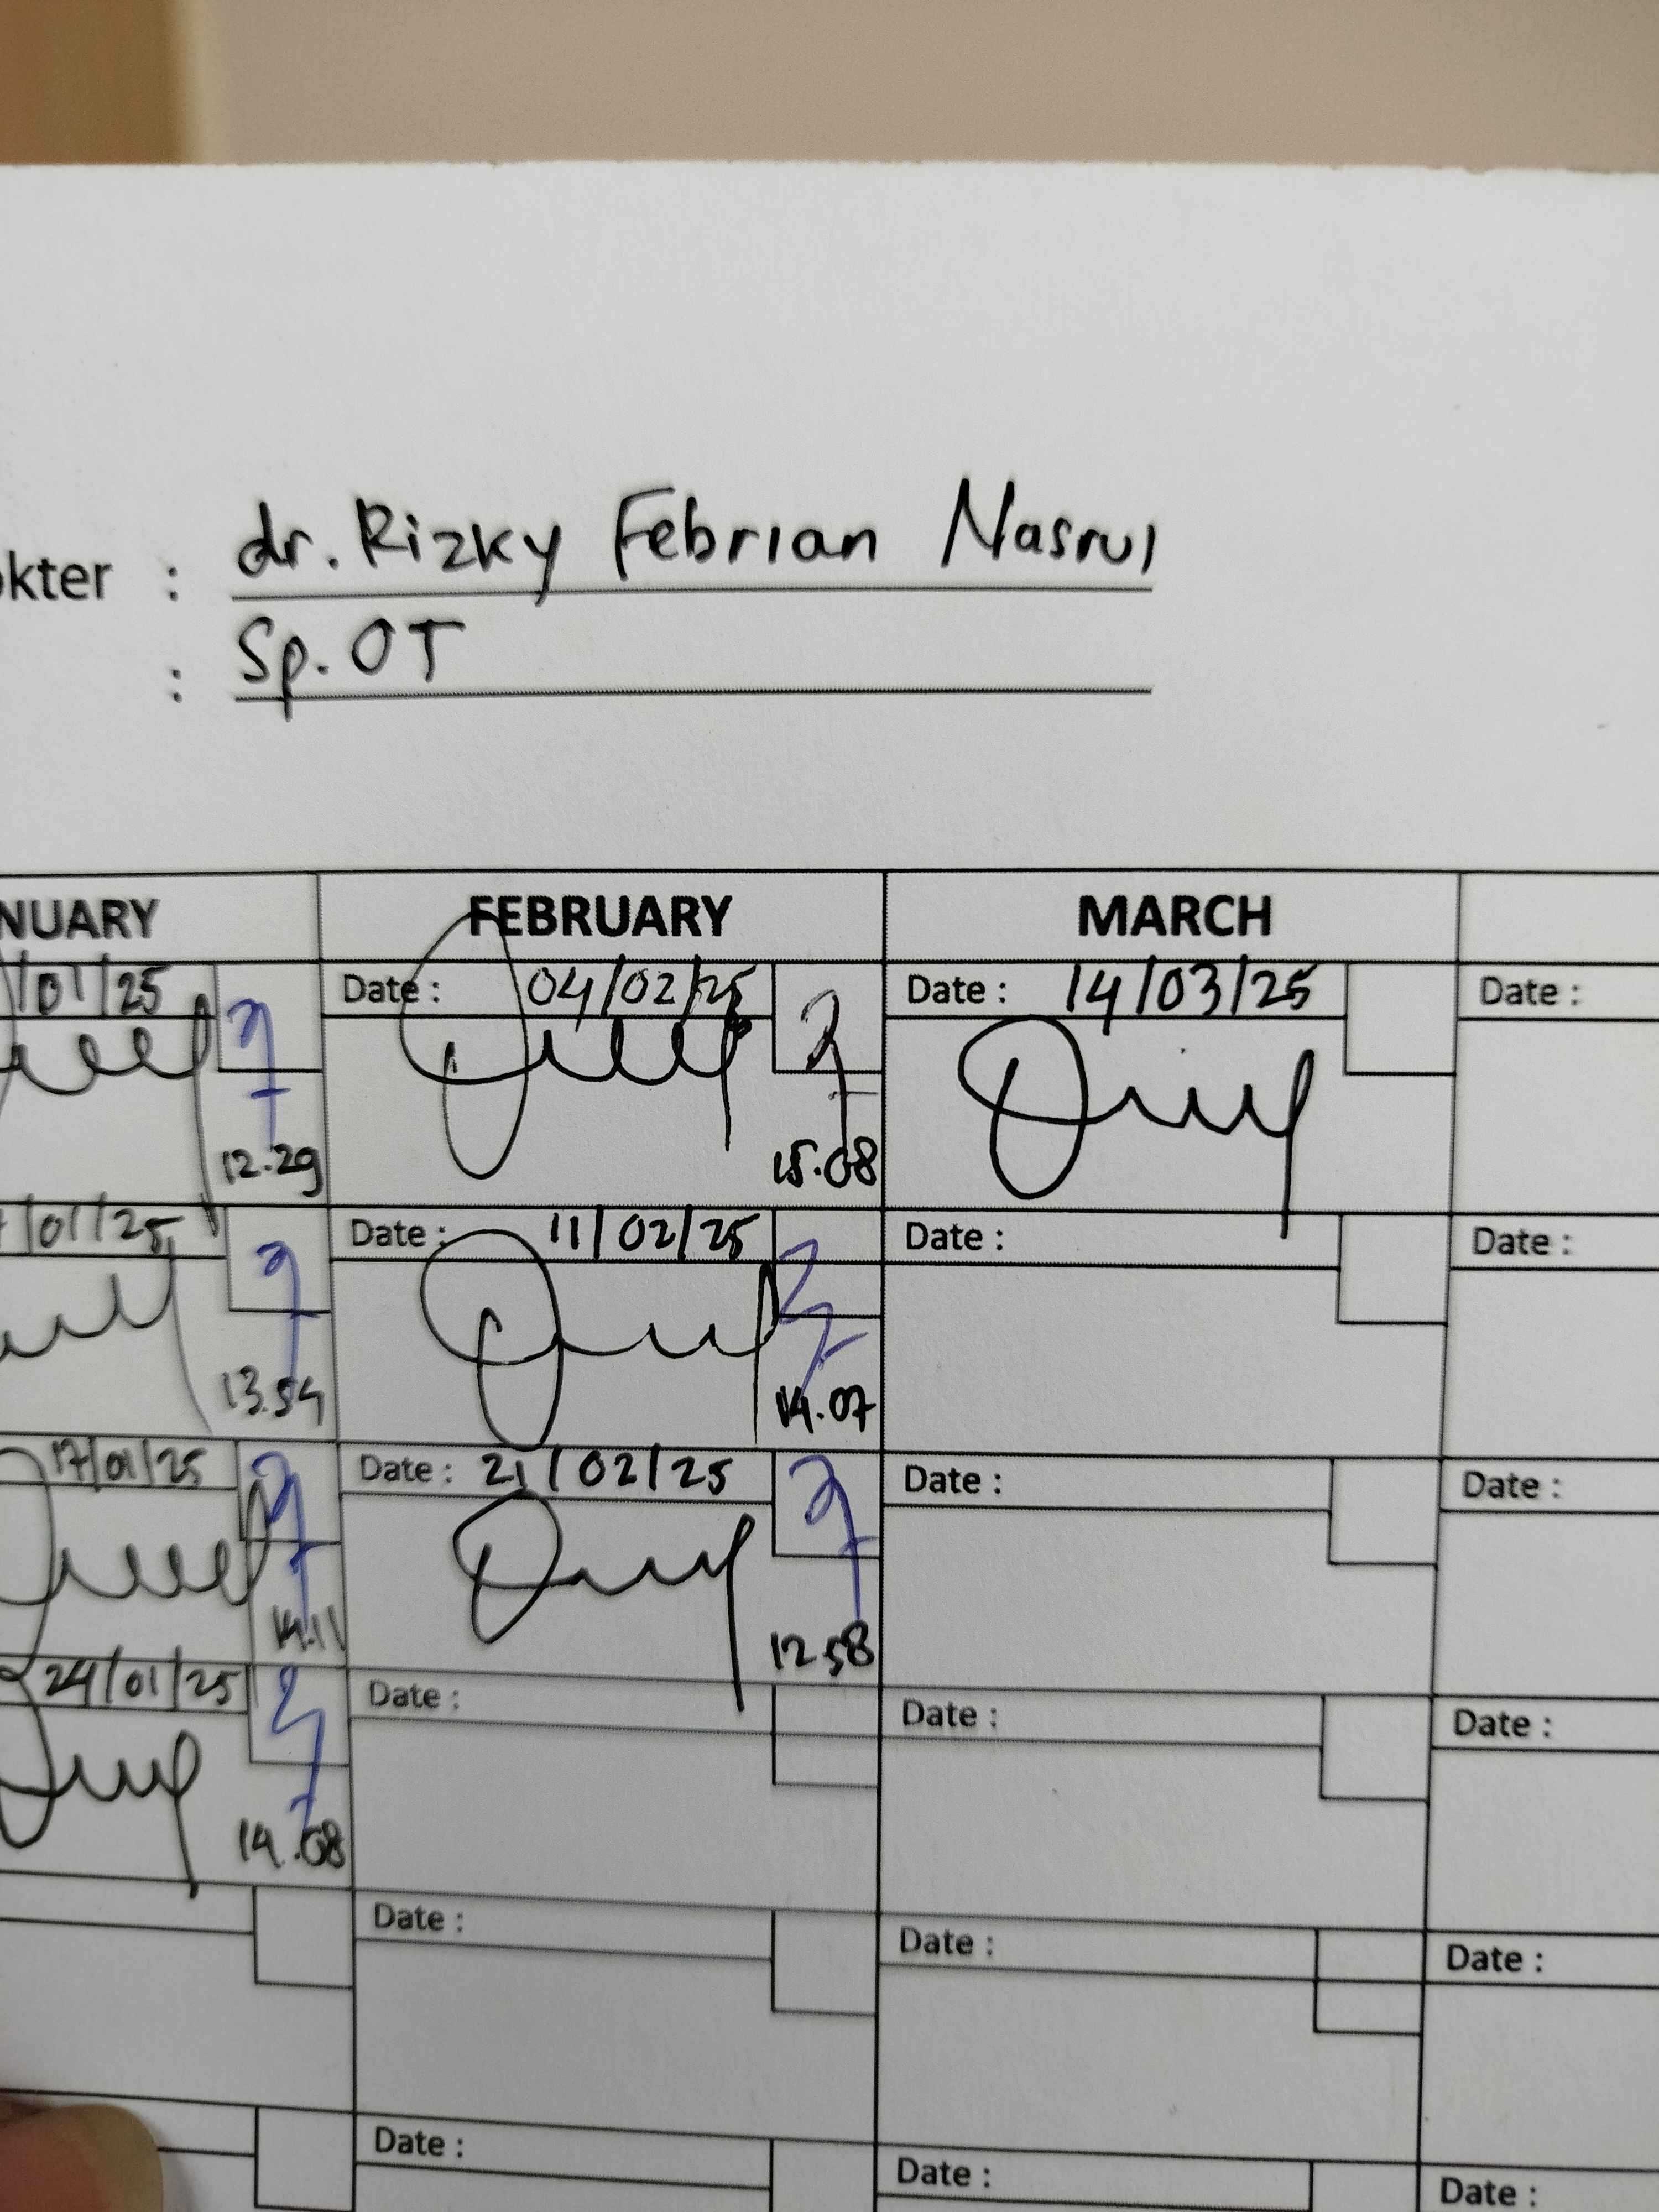 okter : dr. Rizky Febrian Nasrul
: Sp.OT
NUARY FEBRUARY MARCH
/01/25 Date : 04/02/25 Date : 14/03/25 Date :
12.29 15.08
/01/25 Date : 11/02/25 Date : Date :
13.54 14.07
17/01/25 Date : 21/02/25 Date : Date :
14.11 12.58
24/01/25 Date : Date : Date :
14.08
Date : Date : Date :
Date : Date : Date :